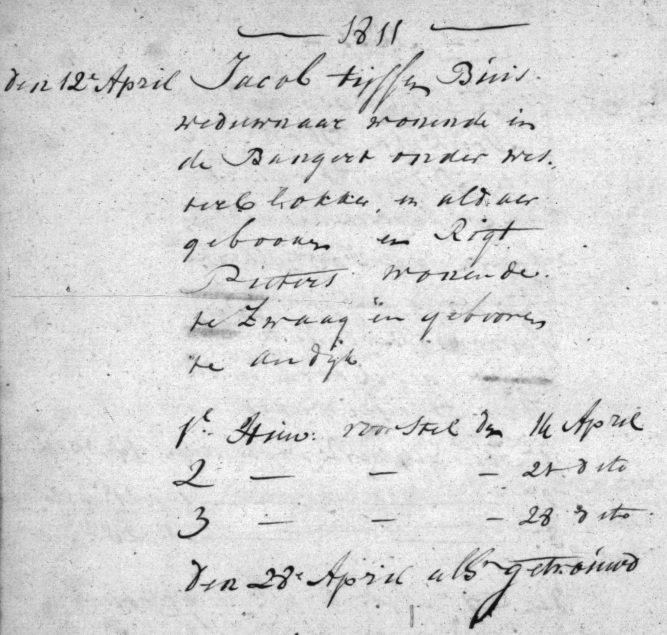 1811
Den 12e April Jacob tijssen Buis
weduwnaar wonende in
de Bangert onder wes-
terblokker en aldaer
gebooren en Rigt
Pieters wonende
te Zwaag en gebooren
te andijk
1e Huw. voorstel den 14 April
2 — — — 21 dito
3 — — — 28 dito
Den 28e April alhr getrouwd